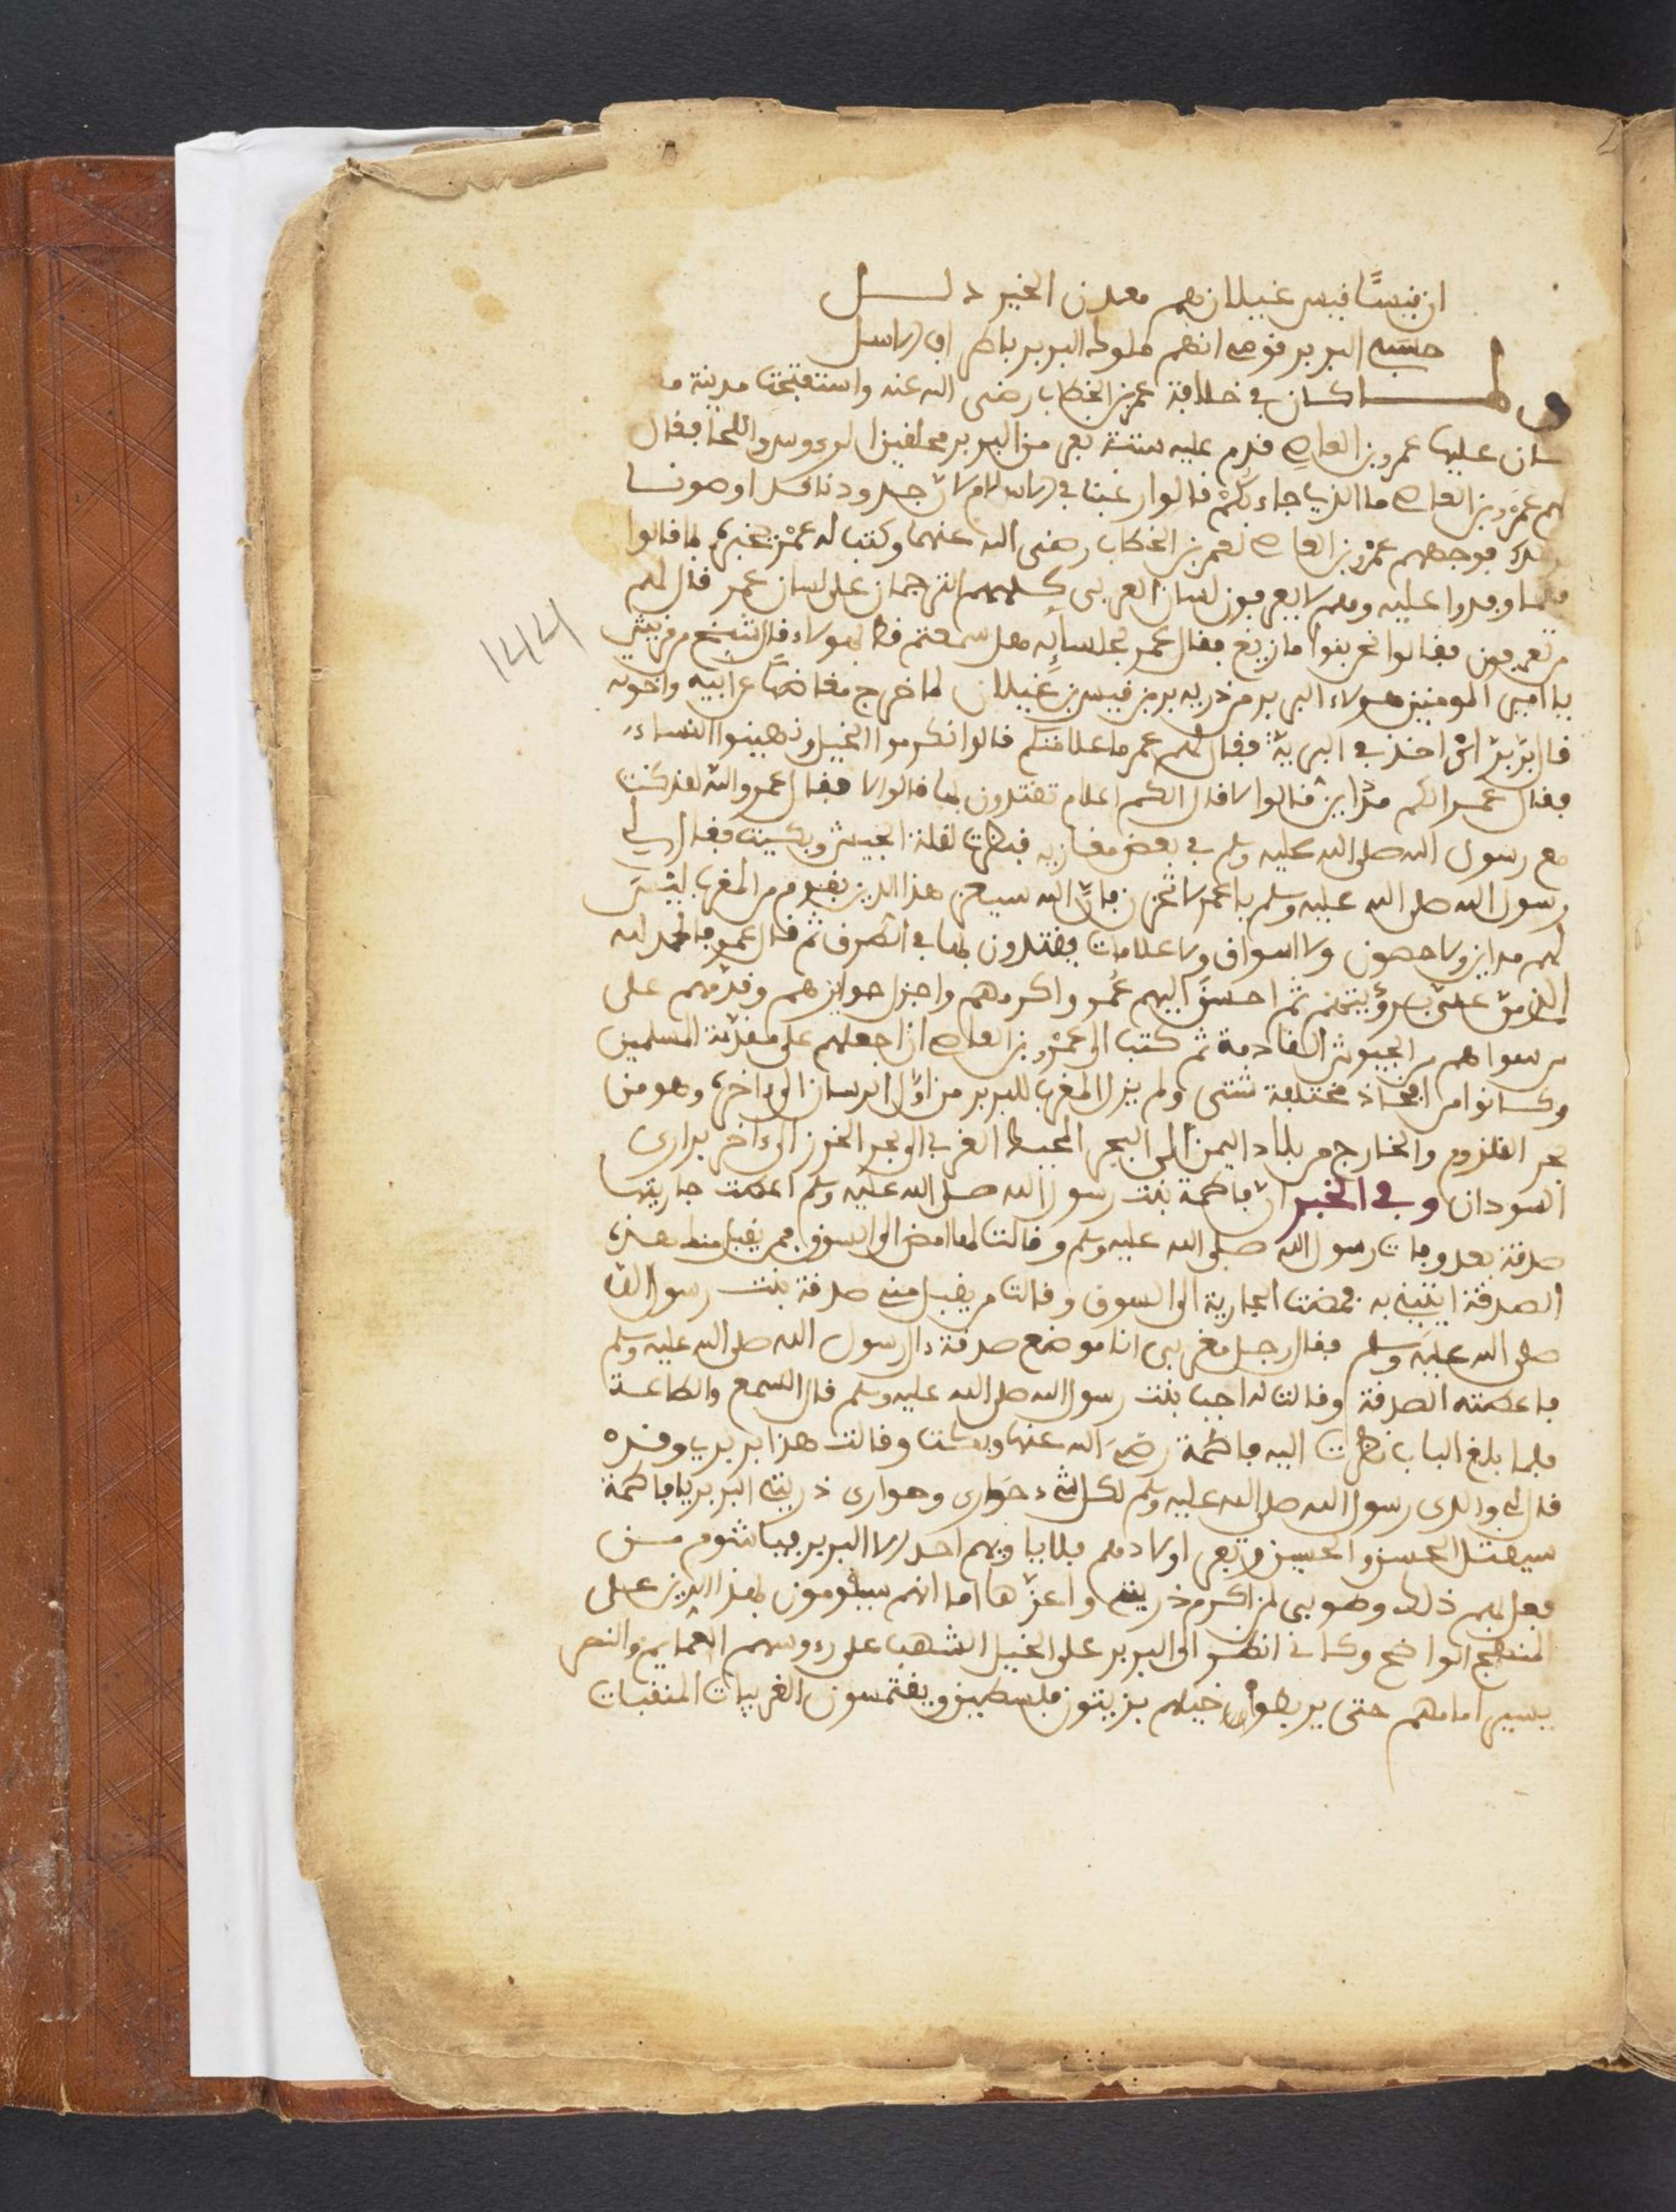 ان قيسًا قيس غيلان هم معدن الخير دلــــل
حسبه البربر قومى انهم ملوك البربر بارض الاسل
ولمــــا كان في خلافة عمر بن الخطاب رضى الله عنه واستفتحت مدينة
كان عليها عمرو بن العاص قدم عليه ستة نفر من البربر محلقين الرءوس واللحا فقال
لهم عمرو بن العاص ما الذى جاء بكم قالوا رغبنا في الاسلام لان جدودنا قد اوصونا
فوجههم عمرو بن العاص لعمر بن الخطاب رضى الله عنهما وكتب له عمرو بخبرهم بما قالوا
فلما وفدوا عليه وهم لا يعرفون لسان العربى كلمهم الترجمان على لسان عمر قال لهم
من تعرفون فقالوا نحن بنوا مازيغ فقال عمر لجلسايه هل سمعتم قط بهولاء فقال شيخ من قريش
يا امير المومنين هولاء البربر من ذرية بر بن قيس بن غيلان لما خرج مغاضبًا عن ابيه واخوته
قال بربر اى اخذ في البرية فقال لهم عمر ما علامتكم قالوا نكرموا الخيل ونهينوا النساء
فقال عمر الكم مداين قالوا لا قال الكم اعلام تقتدون بها قالوا لا فقال عمر والله لقد كنت
مع رسول الله صلى الله عليه وسلم في بعض مغازيه فنظرت لقلة الجيش وبكيت فقال لي
رسول الله صلى الله عليه وسلم يا عمر لا تحزن فان الله سيعز هذا الدين بقوم من المغرب ليس
لهم مداين ولا حصون ولا اسواق ولا علامات يقتدون بها في الطرق ثم قال عمر فالحمد لله
الذى من على برؤيتهم ثم احسن اليهم عمر واكرمهم واجزل جوايزهم وقدمهم على
من سواهم من الجيوش القادمة ثم كتب الى عمرو بن العاص ان اجعلهم على مقدمة المسلمين
وكانوا من افخاذ مختلفة شتى ولم يزل المغرب للبربر من اول الزمان الى ءاخره وهو من
بحر القلزوم والخارج من بلاد اليمن الى البحر المحيط الغربي الى بحر الخزر الى ءاخر برارى
السودان وفي الخبر ان فاطمة بنت رسول الله صلى الله عليه وسلم اعطت جاريتها
صدقة بعد وفات رسول الله صلى الله عليه وسلم وقالت لها امض الى السوق فمن يقبل منك هذه
الصدقة ايتينى به فمضت الجارية الى السوق وقالت من يقبل منى صدقة بنت رسول الله
صلى الله عليه وسلم فقال رجل مغربى انا موضع صدقة ءال رسول الله صلى الله عليه وسلم
فاعطته الصدقة وقالت له اجب بنت رسول الله صلى الله عليه وسلم قال السمع والطاعة
فلما بلغ الباب نظرت اليه فاطمة رضى الله عنها وبكت وقالت هذا بربرى وقد
قال لى والدى رسول الله صلى الله عليه وسلم لكل نبىء حوارى وحوارى ذريتى البربر يا فاطمة
سيقتل الحسن والحسين وتفر اولادهم فلا ياويهم احد الا البربر فيا شوم مــن
فعل بهم ذلك وطوبى لمن اكرم ذريتى واعزها اما انهم سيقومون بهذا الدين على
المنهج الواضح وكانى انظر الى البربر على الخيل الشهب على رءوسهم العمايم والنصر
يسير امامهم حتى يربطوا خيلهم بزيتون فلسطين ويغتمسون الغربيات المنقبات
١٢٢